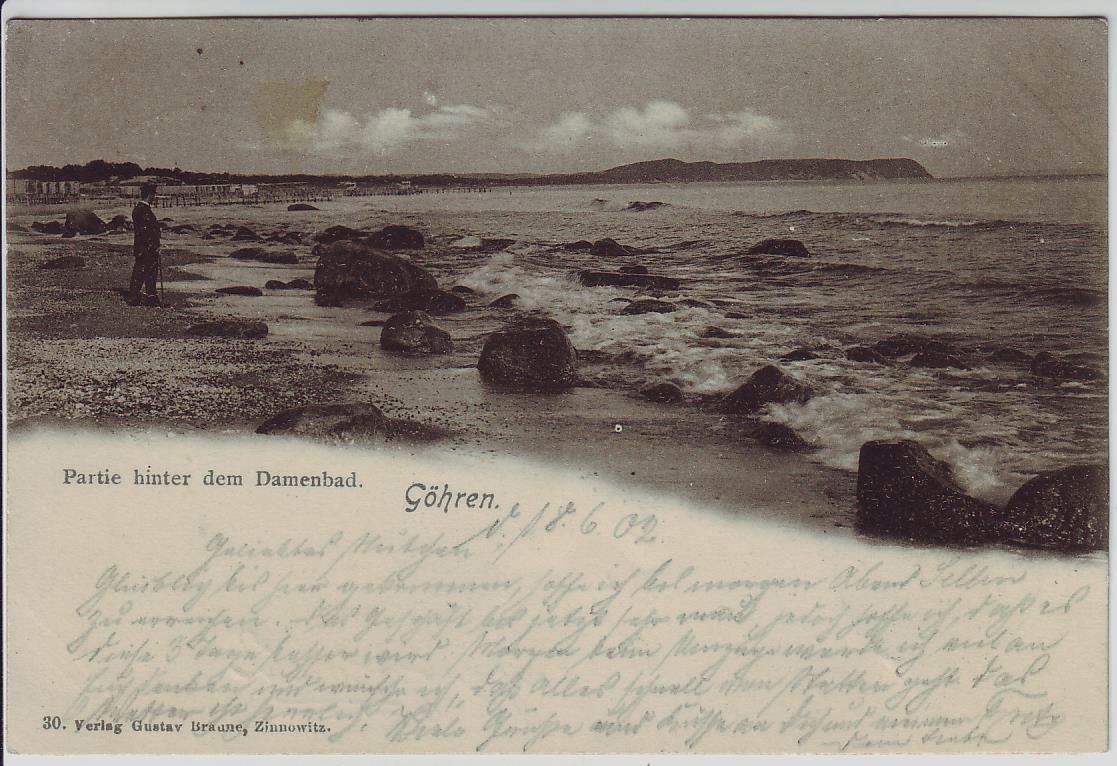 Partie hinter dem Damenbad.
Göhren.
d. 18. 6. 02.
Geliebtes Mutchen!
Glücklich bis hier gekommen, hoffe ich bis morgen Abend Sellin
zu erreichen. Das Geschäft bis jetzt sehr mau, jedoch hoffe ich, daß es
diese 3 Tage besser wird. Morgen beim Umzuge werde ich viel an
Euch denken und wünsche ich, daß alles schnell von Statten geht. Das
Wetter ist herrlich. Viele Grüße und Küsse an Dich und meinen Fritz
30. Verlag Gustav Braune, Zinnowitz.